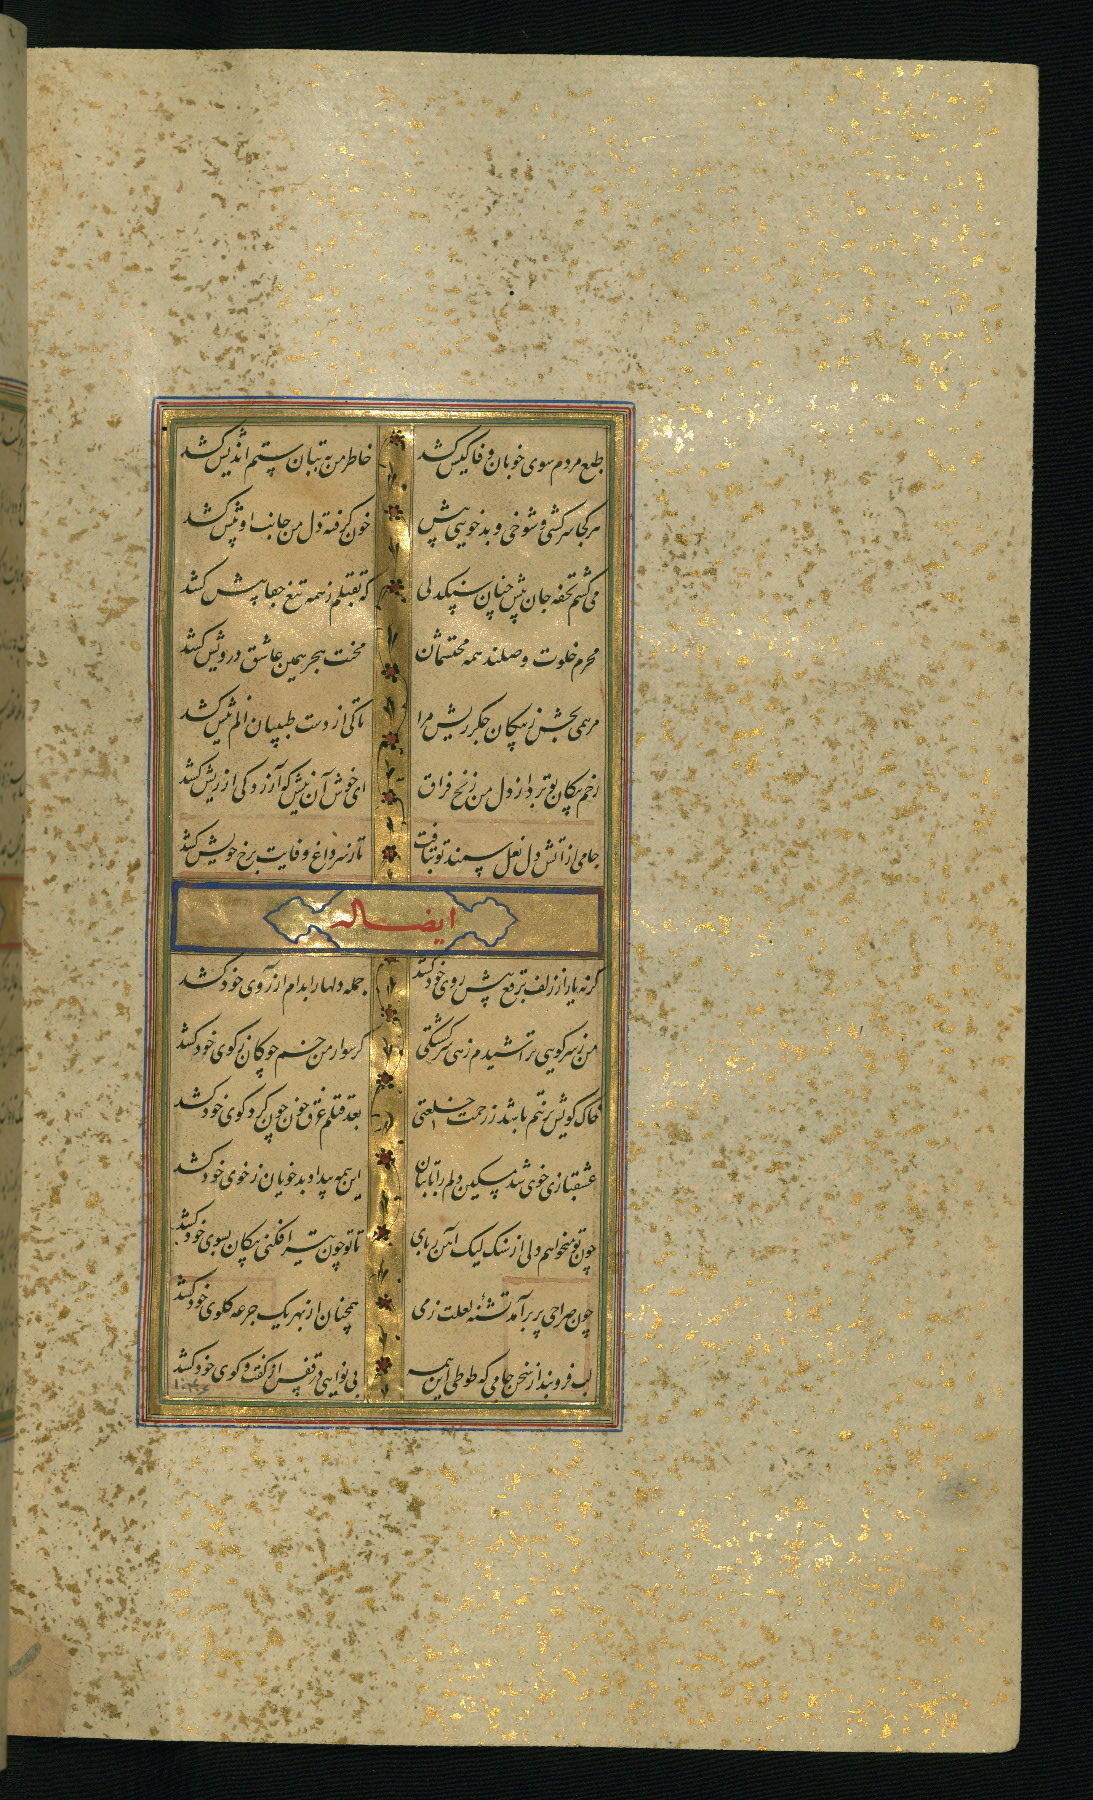 طبع مردم سوی خوبان وفا کیش کشد خاطر من به بتان ستم اندیش کشد
هر کجا سرکشی و شوخی و بدخویی بیش خون گرفته دل من جانب او بیش کشد
می کشم تحفه جان پیش چنان سنگدلی که بقتلم ز همه تیغ جفا پیش کشد
محرم خلوت وصلند همه محتشمان محنت هجر همین عاشق درویش کشد
مرهمی بخش ز پیکان جگر ریش مرا تا کی از دست طبیبان الم نیش کشد
زخم پیکان تو برد از دل من رنج فراق ای خوش آن نیش که آزردگی از ریش کشد
جامی از آتش دل نعل سمند تو بتافت تا ز سر داغ وفایت برخ خویش کشد
ایضا له
گر نه یار از زلف برقع پیش روی خود کشد جمله دلها را بدام از آروی خود کشد
من ز سر گویی تراشیدم زهی سرگشتگی گر سوار من خم چوگان ز گوی خود کشد
خاک کویش بر تنم باشد ز رحمت خلعتی بعد قتلم غرق خون چون گرد کوی خود کشد
عشقبازی خوی شد مسکین دلم را با بتان این همه بیداد بدخویان ز خوی خود کشد
چون تو نخواهم دلی از سنگ لیک آهن ربای تا تو چون تیر افکنی پیکان بسوی خود کشد
چون صراحی پر برآمد تشنه لعلت ز می همچنان از بهر یک جرعه گلوی خود کشد
لب فروبند از سخن جامی که طوطی این همه بی نوایی در قفس از گفت و گوی خود کشد